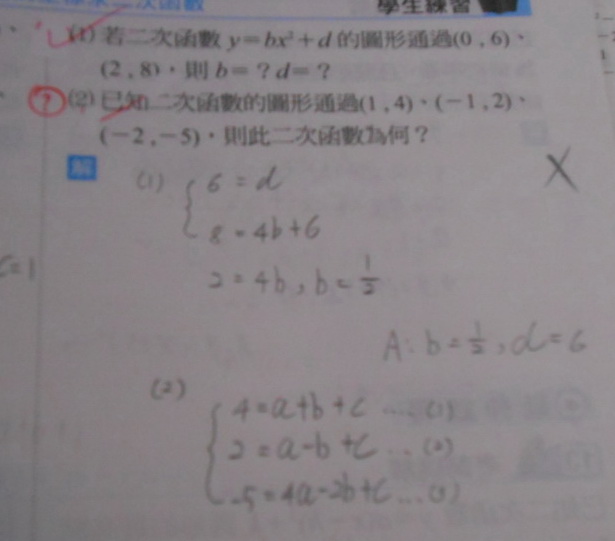 學生練習
(1) 若二次函數 y=bx²+d 的圖形通過(0,6)、
(2,8),則 b=?d=?
? (2) 已知二次函數的圖形通過(1,4)、(-1,2)、
(-2,-5),則此二次函數為何?
解
(1) 6=d
8=4b+6
c=1
2=4b,b=1/2
A:b=1/2,d=6
(2)
4=a+b+c...(1)
2=a-b+c...(2)
-5=4a-2b+c...(3)